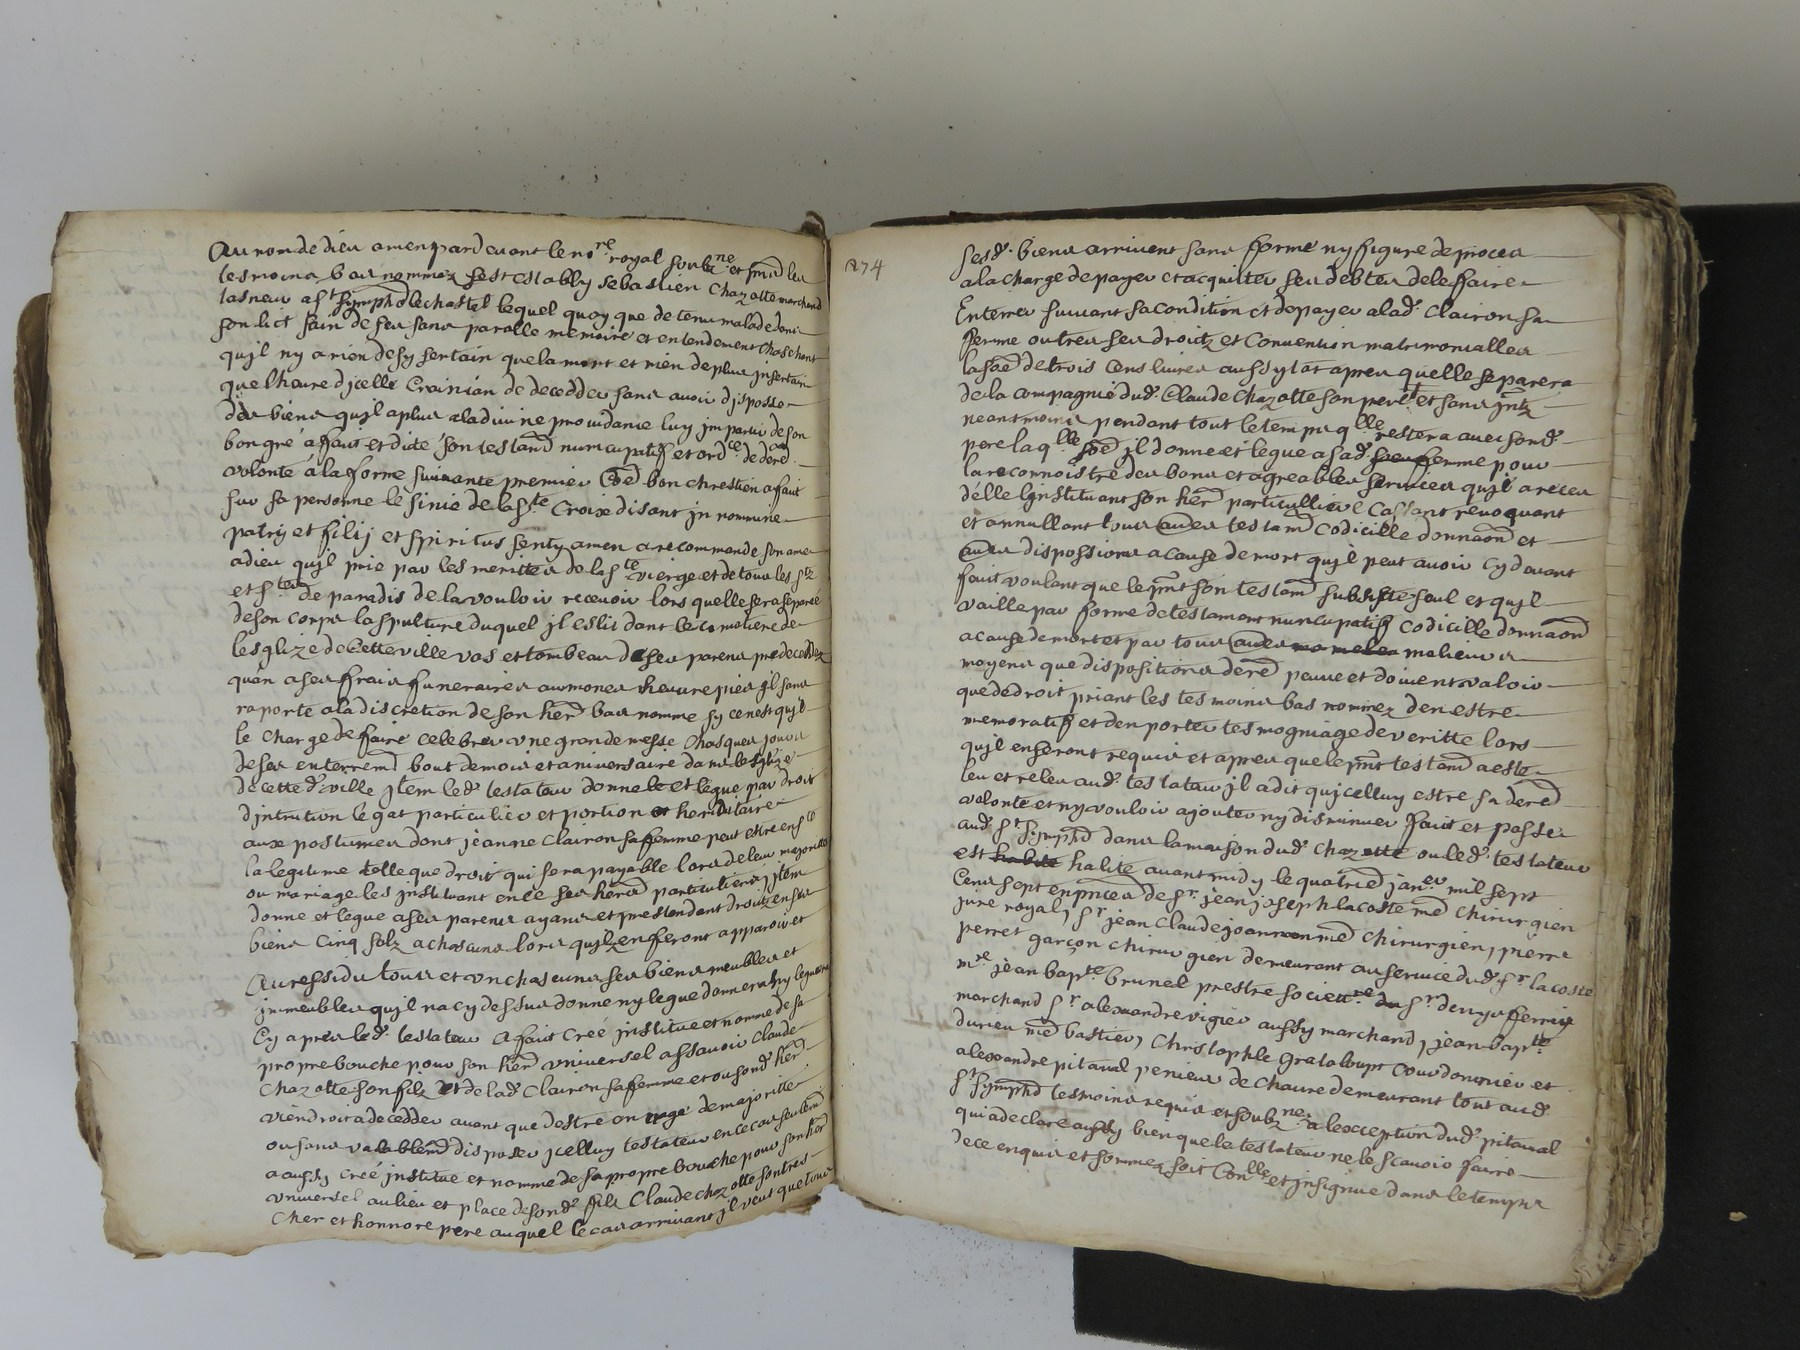 Au nom de dieu amen pardevant le no.re royal soub.ne et pnt les
tesmoins bas nommez sest estably sebastien Chazotte marchand
tasneur a s.t symphd lechastel lequel quoy que detenu malade dans
son lict sain de ses sans parolle memoire et entendement chaschant
quil ny a rien de sy sertain que la mort et rien de plus jnsertain
que lheure djcelle Craignian de decedder sans avoir disposse
des biens quil a plus a la divine providanse luy jmpartir de son
bon gré a fait et dicté son testamd nuncupatif et ord.ce de dered
volonté á la forme suivante premier Coe bon chrestien a fait
sur sa personne le sinie de la s.te Croix disant jn nomine
patrij et filij et spiritus senty amen a recommande son ame
a dieu quil prie par les merittes de la s.te vierge et de tous les s.tz
et s.tes de paradis de la vouloir recevoir lors quelle sera separé
de son corps la spulture duquel jl eslit dans le cimotiere de
lesglize de Cette ville vas et tombeau de ses parens predeceddez
quan a ses frais funeraires aumones heuvre pies jl sans
raporte a la discretion de son herd bas nomme sy ce nest quil
le charge de faire celebrer vne grande messe chasques jours
de ses enterremd bout de mois et aniversaire dans lesglize
de cette d. ville jtem led. testateur donne et legue par droit
djntitution legat particulier et portion hereditaire
aux postumes dont jeanne Clairon sa femme peut estre ens.te
la legitime telle que de droit qui sera payable lors de leur majoritté
ou mariage les jnstituant en ce ses herds particuliers jtem
donne et legue a ses parens ayans et prestendant droitz en ses
biens Cinq solz a chascuns lors quilz en feront apparoir et
Au ressidu tous et vn chascuns ses biens meubles et
jmmeubles quil na cy dessus donne ny legue donnera ny leguera
Cy apres led. testateur a fait creé jnstitue et nomme de sa
propre bouche pour son herd vniversel assavoir Claude
Chazotte son filz et de lad. Clairon sa femme et ou sond. herd
viendroit a decedder avant que destre en aage de majoritte
ou sans valablemd disposer jcelluy testateur en ce cas seulemd
a aussy creé jnstitue et nomme de sa propre bouche pour son herd
vniversel au lieu et place de sond. fils Claude chazotte son tres
Cher et honnore pere auquel le cas arrivant jl veut que tous
274
sesd. biens arrivent sans forme ny figure de proces
a la charge de payer et acquitter ses debtes de le faire
Enterrer suivant sa condition et de payer a lad. Clairon sa
femme outres ses droitz et Convention matrimonialles
la soe de trois Cens livres aussytat apres quelle separera
de la compagnie dud. Claude chazotte son pere et sans jntz
neantmoins pendant tout le temps qlle restera avec sond.
pere laq.lle soe jl donne et legue a sad. femme pour
la reconnoistre des bons et agreables services quil a receu
délle linstituant son herd particulliere Cassant revoquant
et annullant tous aues testamd codicille donnaon et
aues dispossions a cause de mort quil peut avoir cy devant
fait voulant que le pnt son testamd subsiste seul et quil
vaille par forme de testamant nuncupatif codicille donnaon
a cause de mort et par tous aues melieurs
moyens que disposition dered peuve et doivent valoir
que de droit priant les tesmoins bas nommez den estre
memoratif et den porter tesmogniage de veritte lors
quil en seront requis et apres que le pnt testamd a este
leu et releu aud. testateur jl a dit qujcelluy estre sa dered
volonte et ny vouloir ajouter ny diminuer fait et passe
aud. s.t symphd dans la maison dud. chazotte ou led. testateur
est halité avant midy le quatried janer mil sept
Cens sept en pnces de s.r jean joseph lacoste me chirurgien
juré royal, s.r jean Claude me chirurgien, pierre
perret garçon chirurgien demeurant au service dud. s.r lacoste
m.re jean bap.te brunel prestre societ.re s.r denys ferriez
marchand s.r alexandre vigier aussy marchand, jean bap.te
durieu me bastier, Christophle grataloupt courdonnier et
alexandre pitaval demeurant tout aud.
s.t symphd tesmoins requis et soubz.nez a lexception dud. pitaval
qui a declare aussy bien que le testateur ne le scavoir faire
de ce enquis et sommez soit Con.lle et jnsignue dans le temps